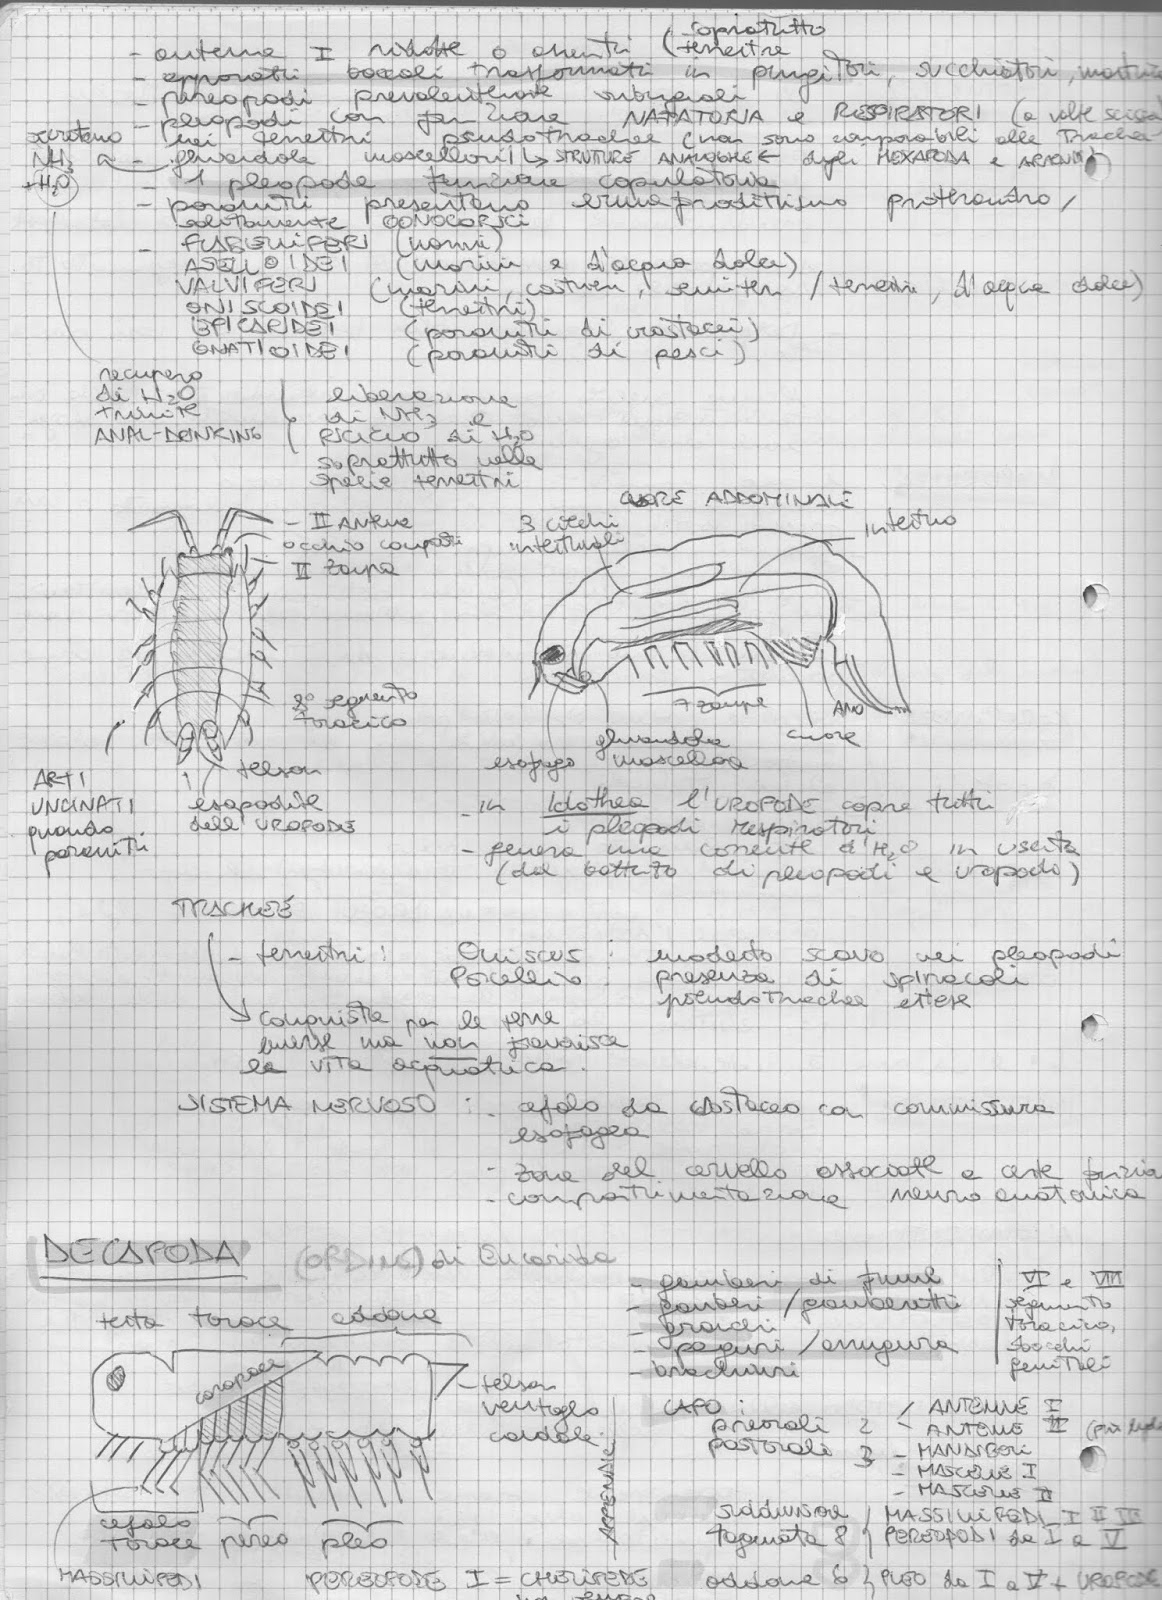 sopratutto
- antenna I ridotte o assenti (terrestre
- apparati boccali trasformati in pungitori, succhiatori,
- pereopodi prevalentemente
- pleopodi con funzione NATATORIA e RESPIRATORI (a volte
nei terrestri pseudotrachee (non sono comparabili alle trachee
secretano
NH3
+ H2O
- ghiandole mascellari STRUTURE ANALOGHE degli HEXAPODA e
1 pleopode funzione copulatoria
- parassiti presentano ermafroditismo proterandro/
solitamente GONOCORICI
- FLABELLIFERI (marini)
ASELLOIDEI (marini e d'acqua dolce)
VALVIFERI (marini, costieri, / terrestri, d'acqua dolce)
ONISCOIDEI (terrestri)
EPICARIDEI (parassiti di crostacei)
GNATIOIDEI (parassiti di pesci)
recupero
di H2O
tramite
ANAL-DRINKING
liberazione
di NH3 e
RICICLO di H2O
soprattutto nelle
specie terrestri
- II Antenne
occhio composti
II zampa
8° segmento
toracico
telson
esopodite
dell'UROPODE
ARTI
UNCINATI
quando
parassiti
CUORE ADDOMINALE
3 ciechi
intestinali
intestino
7 zampe
ANO
cuore
ghiandola
mascellare
esofago
- in Idothea l'UROPODE copre tutti
i pleopodi respiratori
- genera una corrente d'H2O in uscita
(dal battito di pleopodi e uropodi)
TRACHEE
- terrestri: Oniscus : modesto scavo nei pleopodi
Porcellio : presenza di spiracoli
pseudotrachee estese
conquista per le terre
emerse ma non favorisce
la vita acquatica.
SISTEMA NERVOSO : - cefalo da crostaceo con commissura
esofagea
- zone del cervello associate a certe
- compartimentazione neuroanatomica
DECAPODA (ORDINE) di Eucarida
- gamberi di fiume
- gamberi / gamberetti
- granchi
- paguri / anomura
- brachiuri
VI e VIII
segmento
toracico,
sbocchi
genitali
testa torace addome
carapace
- telson
ventaglio
caudale
cefalo
torace pereo pleo
MASSILLIPEDI
PEREOPODE I = CHELIPEDE
APPENDICI
CAPO :
preorali 2 / ANTENNE I
- ANTENNE II
postorali 3 - MANDIBOLE
- MASCELLE I
- MASCELLE II
suddivisione
tagmata 8 MASSILLIPEDI I II III
PEREOPODI da I a V
addome 6 PLEO da I a V + UROPODE